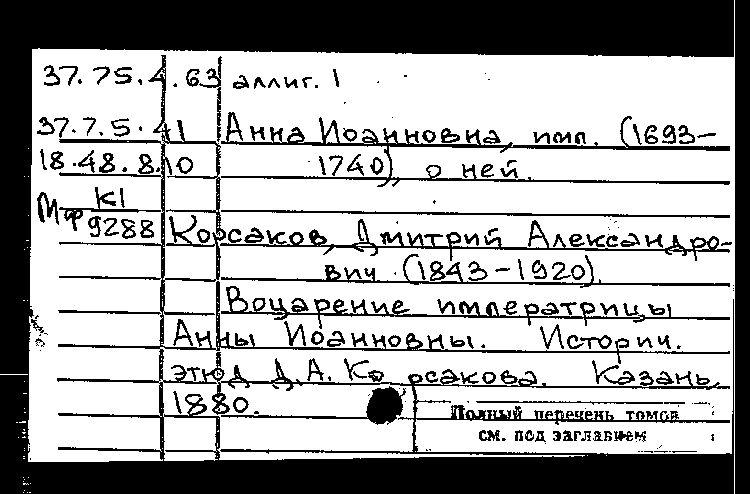 37.75.4.63 аллиг. 1
37.7.5.41 Анна Иоанновна, имп. (1693-
18.48.8.10 1740), о ней.
Мф К1
9288 Корсаков, Дмитрий Александро-
вич (1843-1920).
Воцарение императрицы
Анны Иоанновны. Историч.
этюд Д.А. Корсакова. Казань,
1880.
Полный перечень томов
см. под заглавием